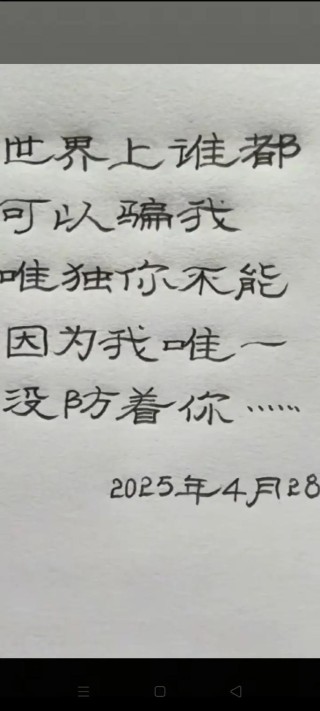 世界上谁都
可以骗我
唯独你不能
因为我唯一
没防着你……
2025年4月28